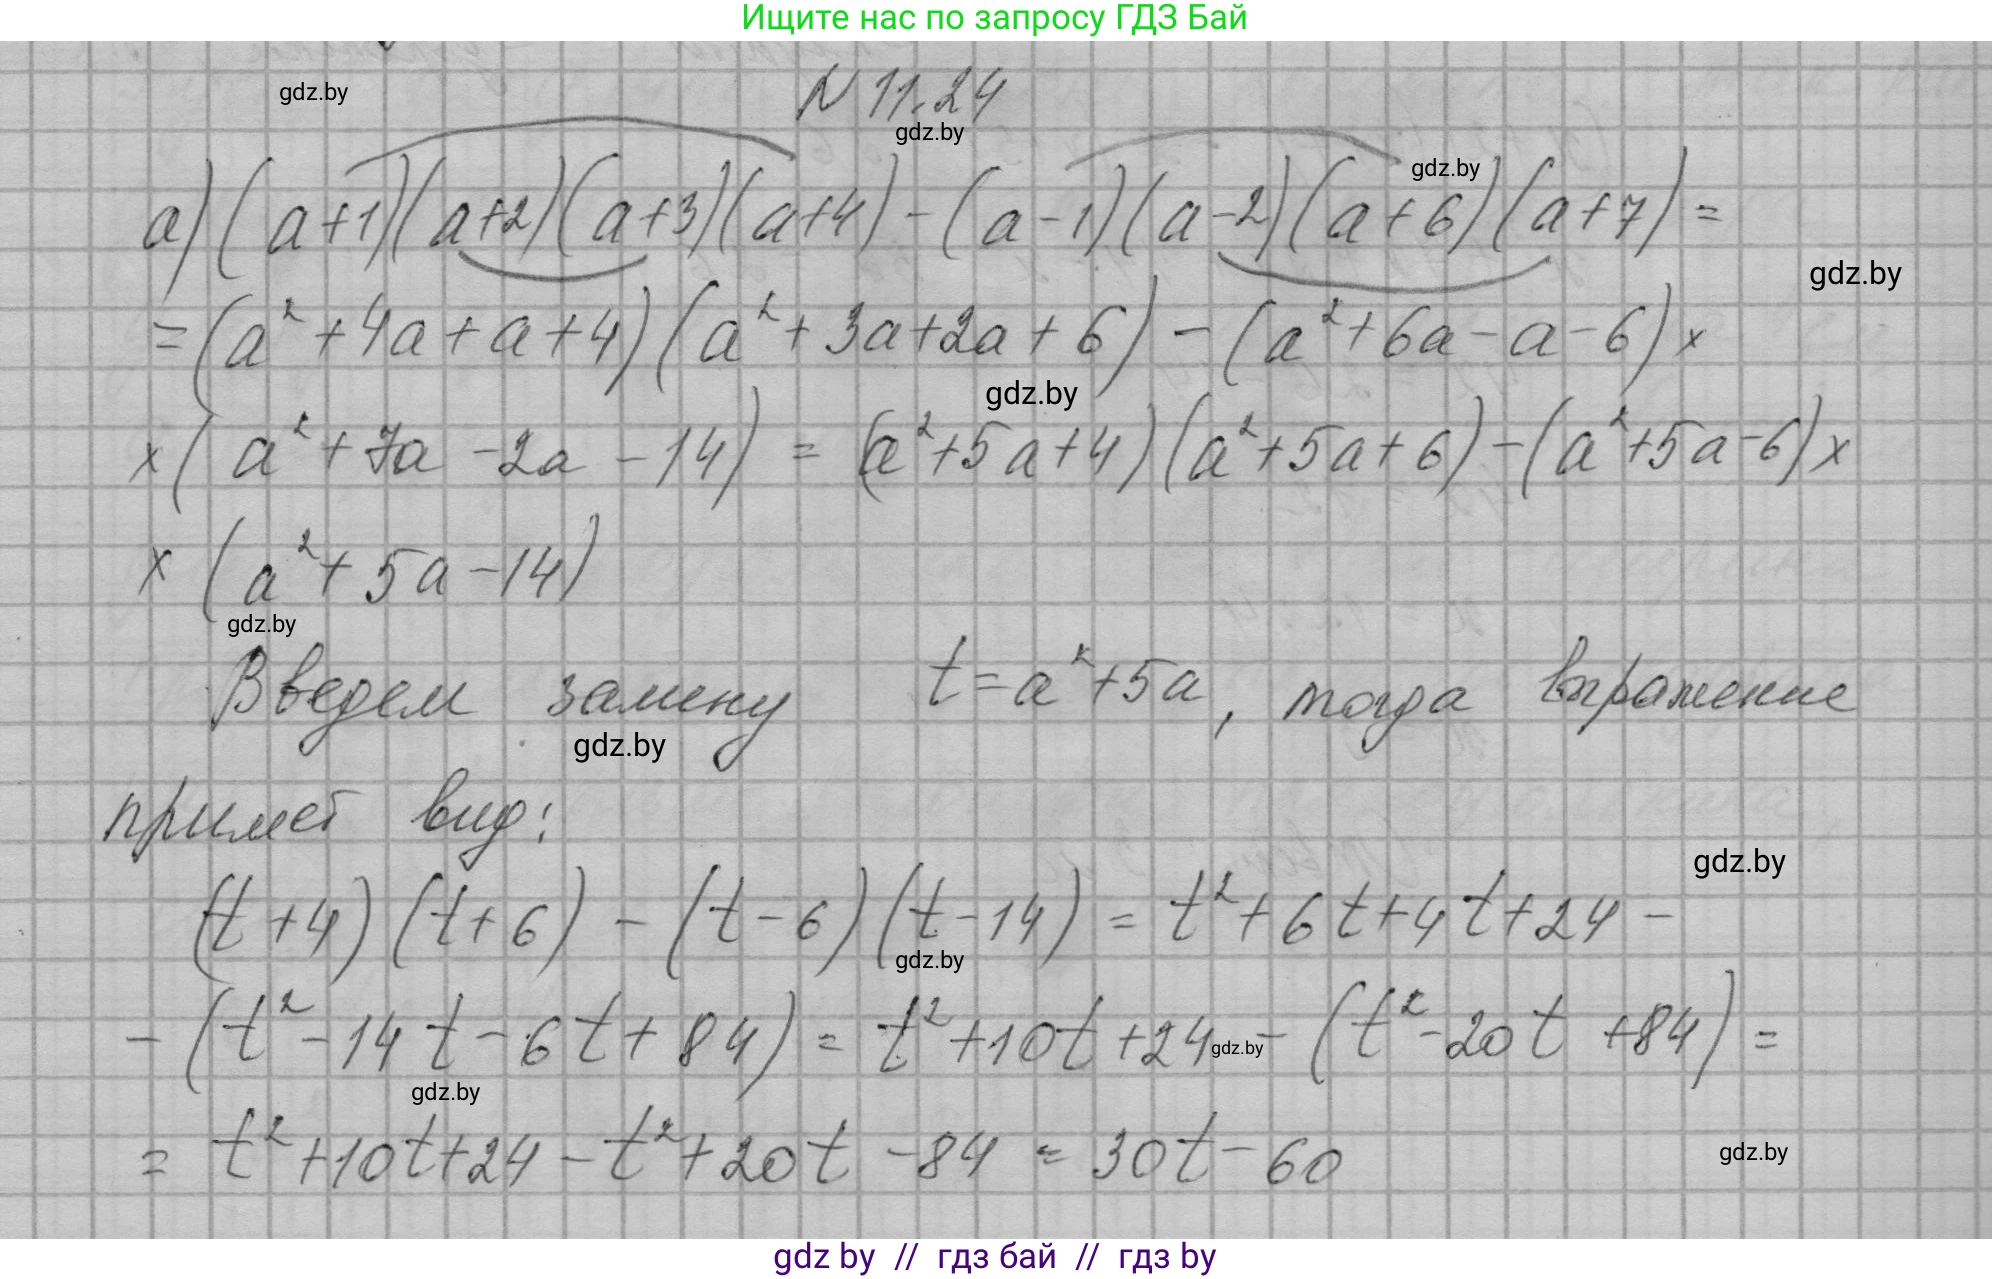 Ищите нас по запросу ГДЗ Бай
N 11.24
gdz.by
gdz.by
gdz.by
а) (a+1)(a+2)(a+3)(a+4) - (a-1)(a-2)(a+6)(a+7) =
gdz.by
= (a² + 4a + a + 4)(a² + 3a + 2a + 6) - (a² + 6a - a - 6) ×
gdz.by
× (a² + 7a - 2a - 14) = (a² + 5a + 4)(a² + 5a + 6) - (a² + 5a - 6) ×
× (a² + 5a - 14)
gdz.by
Введем замену t = a² + 5a, тогда выражение
gdz.by
примет вид:
gdz.by
(t + 4)(t + 6) - (t - 6)(t - 14) = t² + 6t + 4t + 24 -
gdz.by
- (t² - 14t - 6t + 84) = t² + 10t + 24 - (t² - 20t + 84) =
gdz.by
gdz.by
= t² + 10t + 24 - t² + 20t - 84 = 30t - 60
gdz.by
gdz by // гдз бай // гдз by